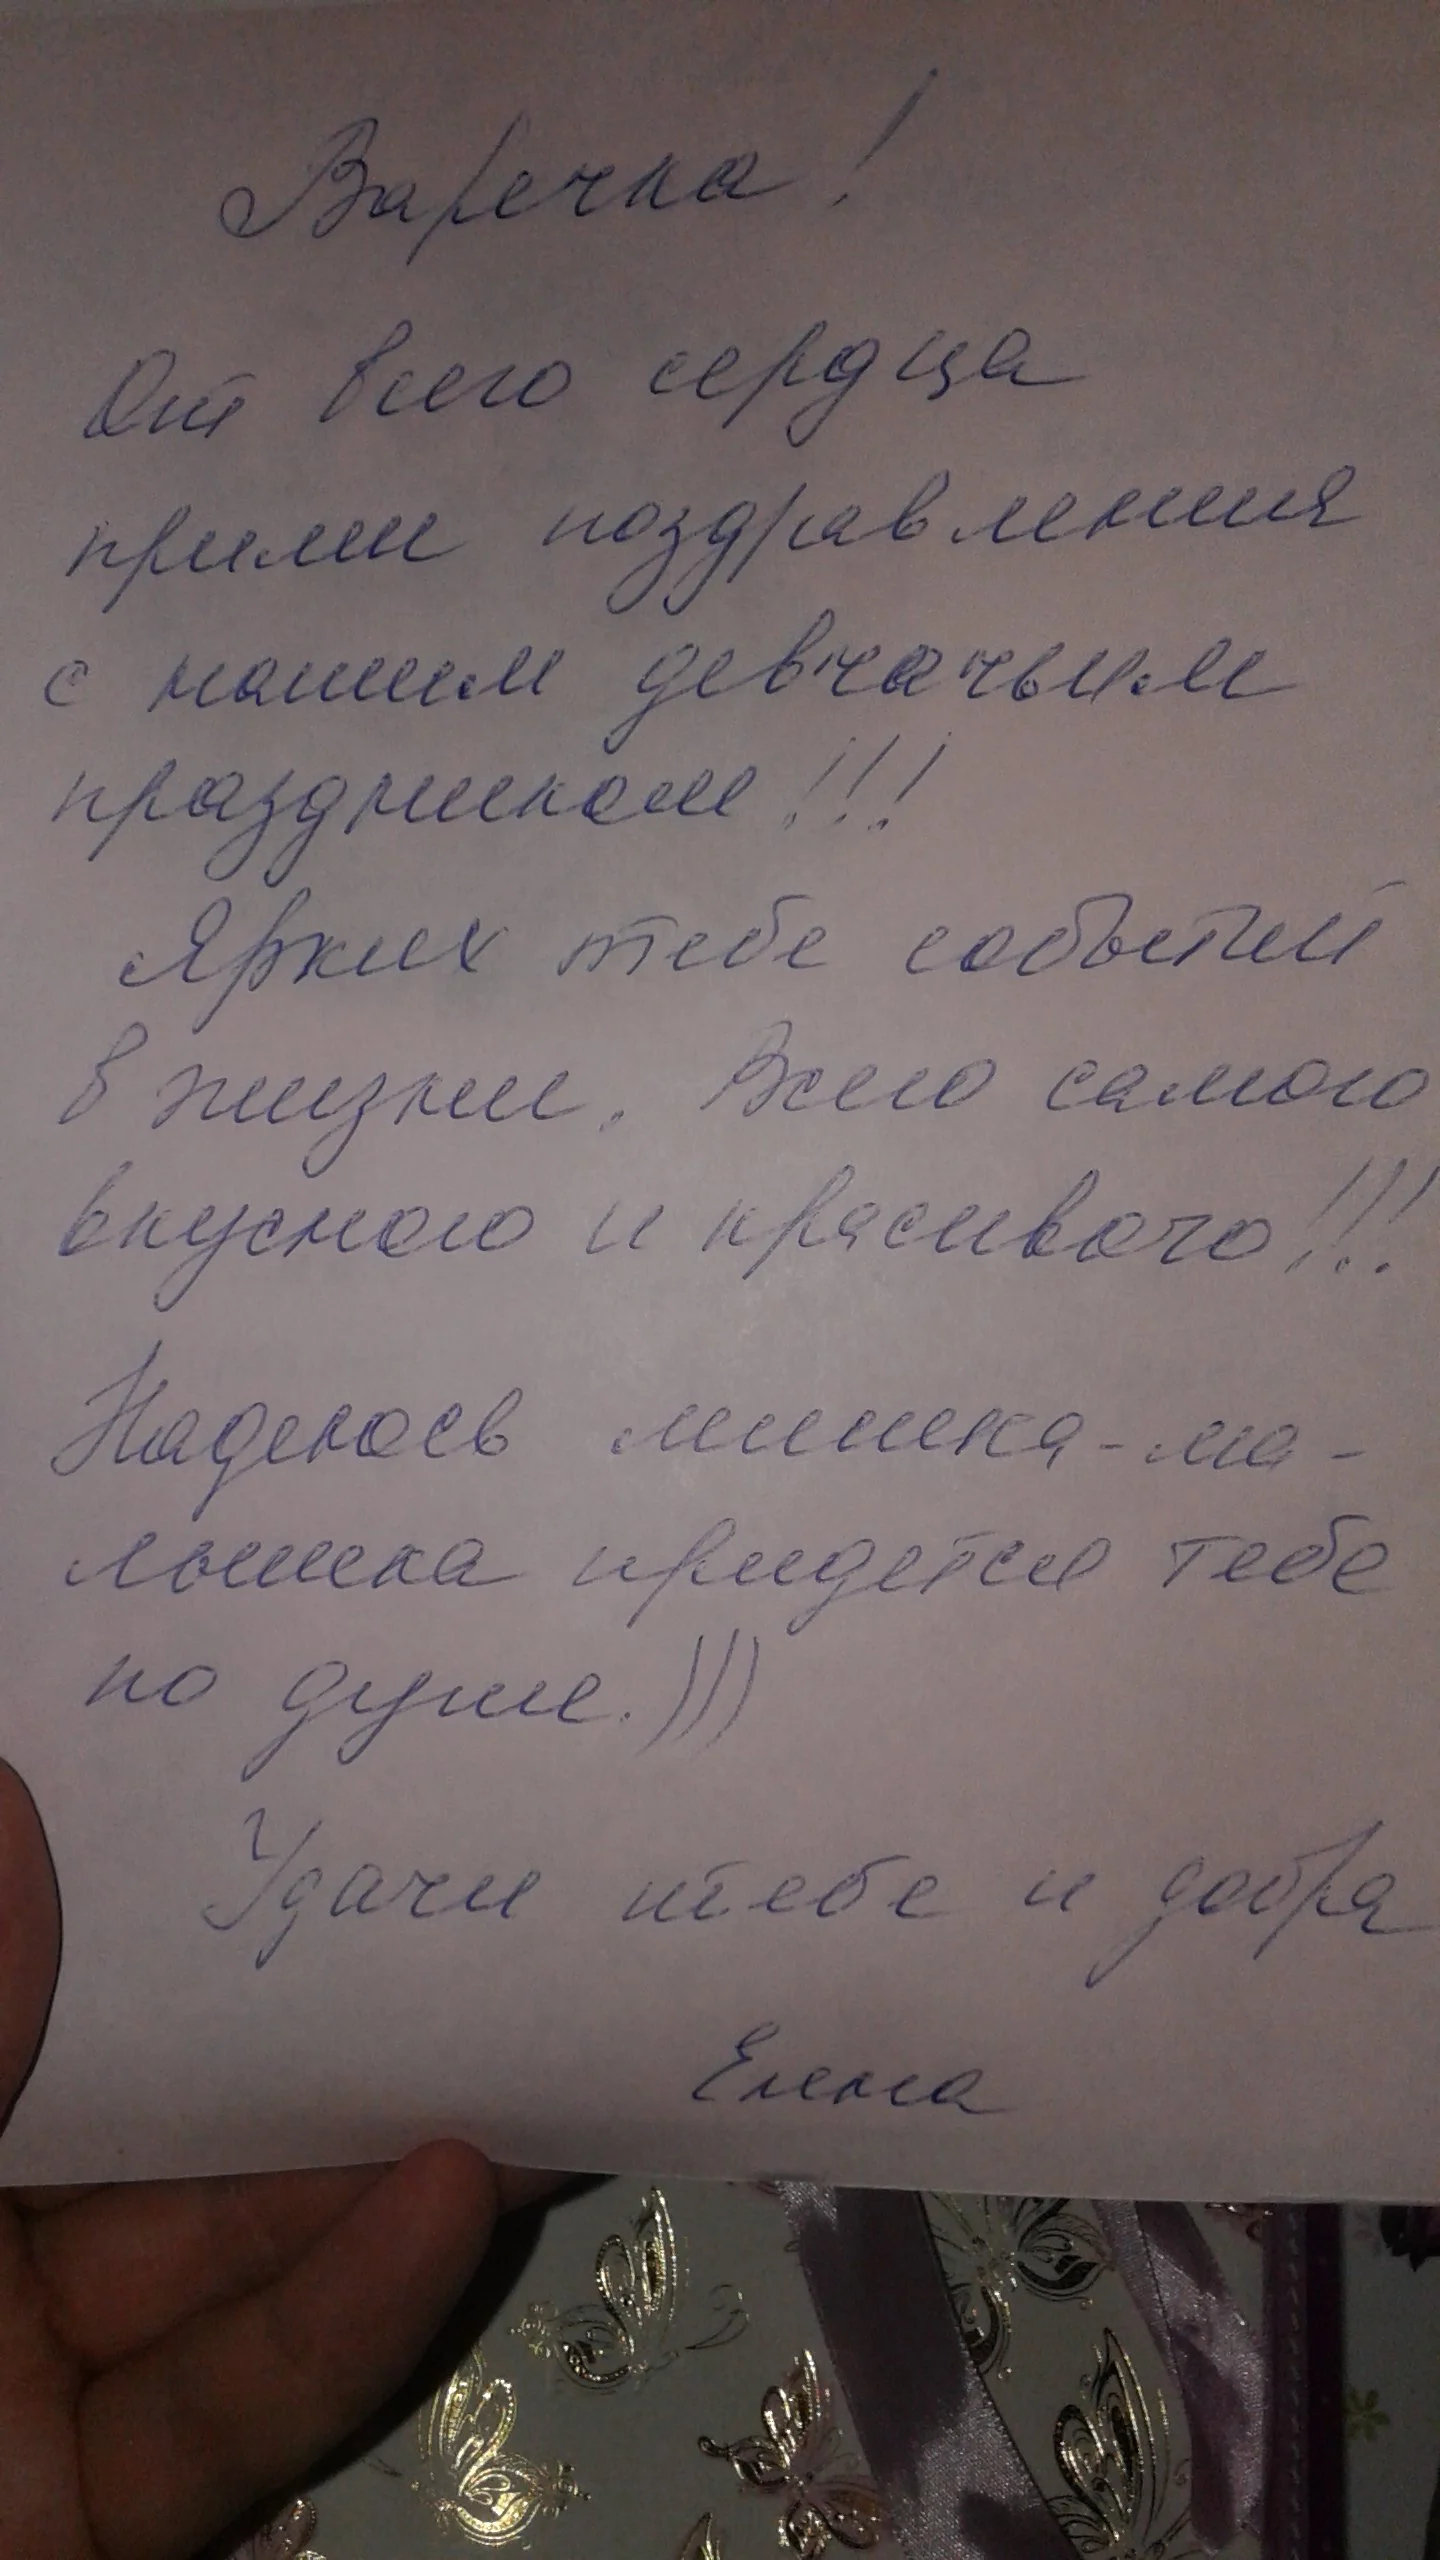 Варечка!
От всего сердца
прими поздравления
с нашим девчачьим
праздником!!!
Ярких тебе событий
в жизни. Всего самого
вкусного и красивого!!!
Надеюсь мишка-ма-
лышка придется тебе
по душе.)))
Удачи тебе и добра
Елена